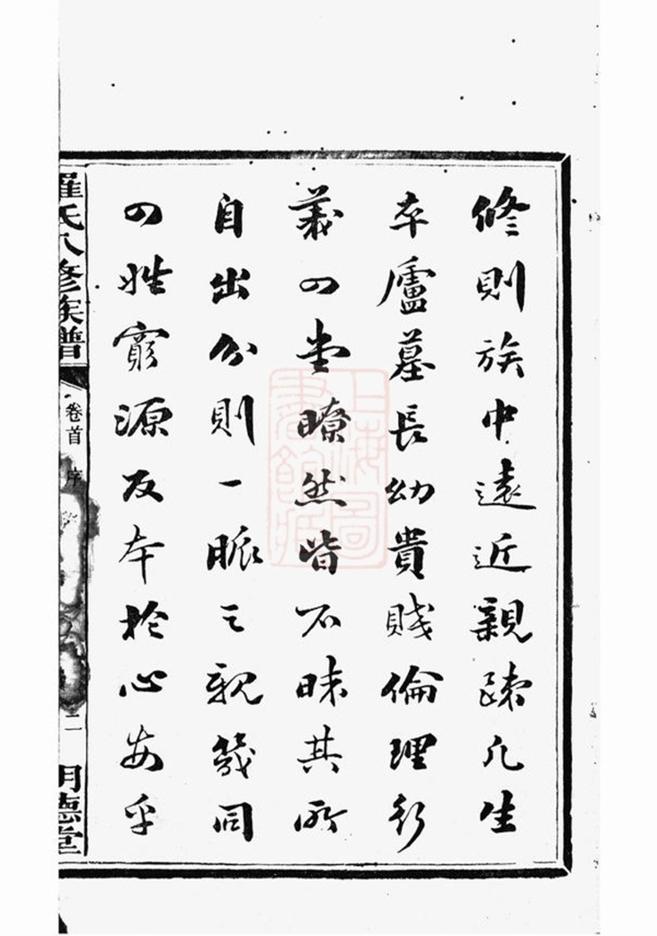 修則族中遠近親疎凡生
卒廬墓長幼貴賤倫理行
義瞭然皆不昧其所
自出分則一脈之親幾同
姓窮源反本於心安乎
羅氏八修族譜
卷首 序
二
明德堂
上海圖書館藏